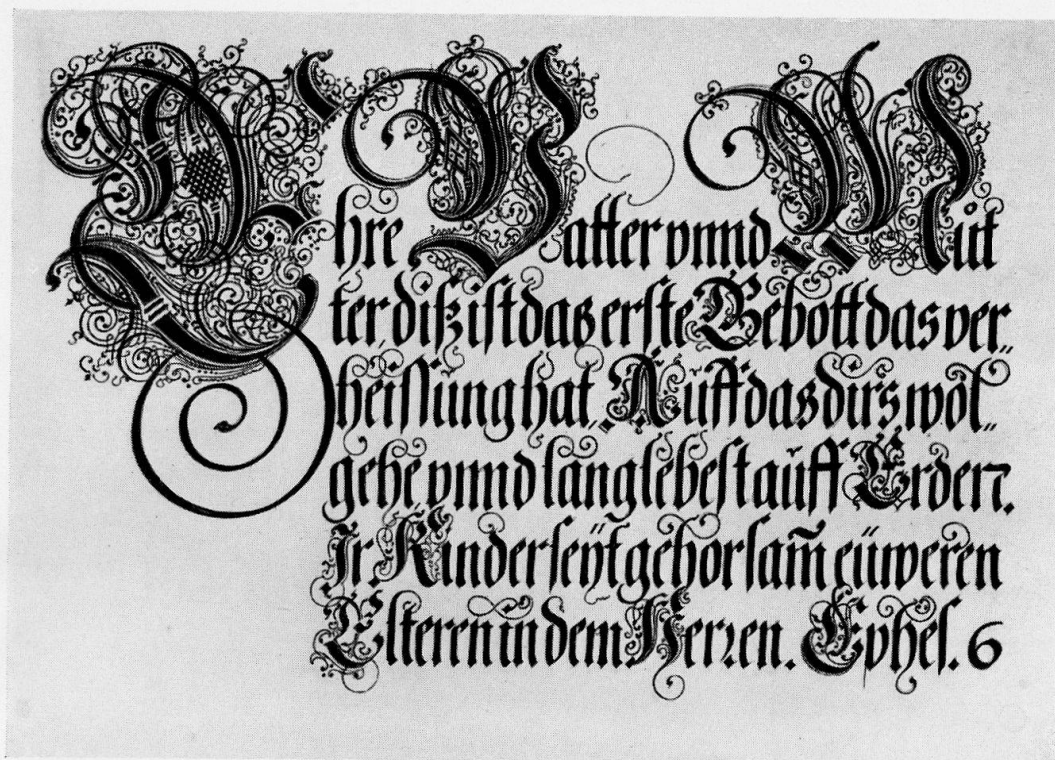 Ehre Vatter vnnd Můt
ter, diſz iſt das erſte Gebott das ver„
heiſſung hat, Auff das dirs wol„
gehe vnnd lang lebeſt auff Erden.
Ir Kinder ſeyt gehorſam̃ eüweren
Elteren in dem Herren. Epheſ. 6